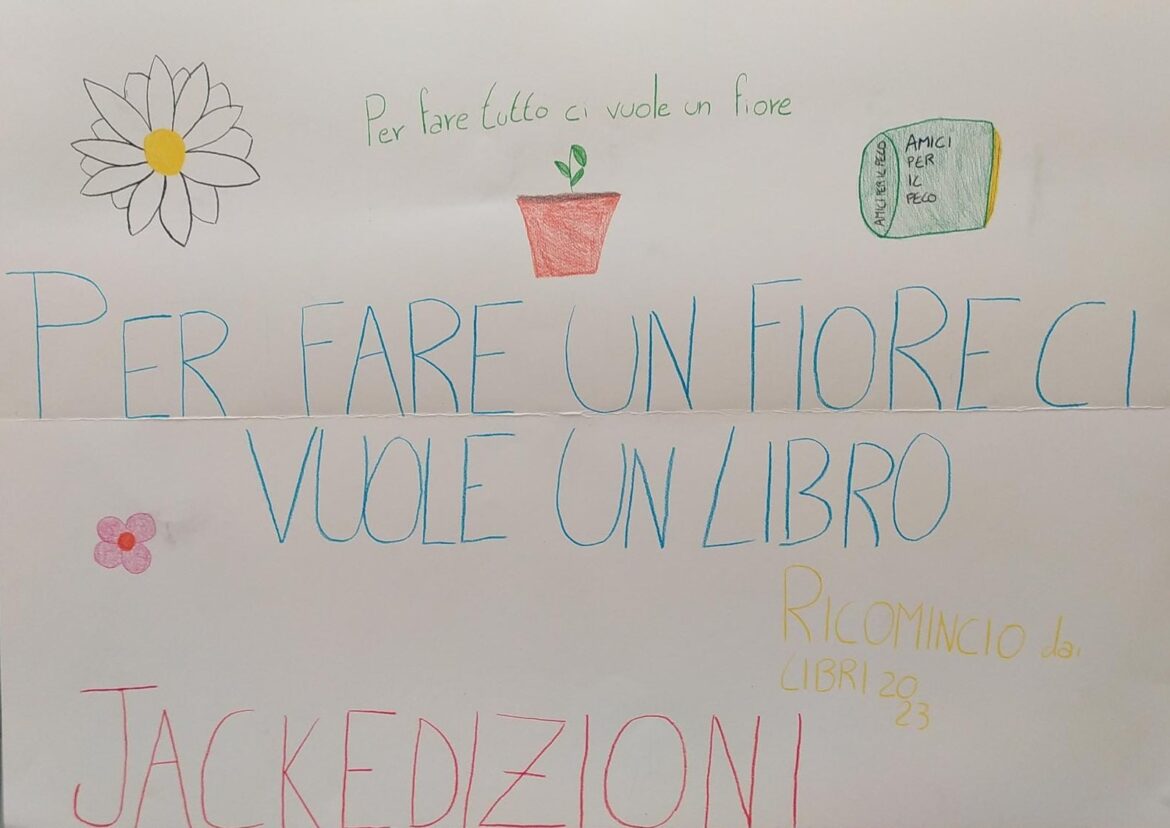 Per fare tutto ci vuole un fiore
AMICI PER IL PECO
AMICI
PER
IL
PECO
PER FARE UN FIORE CI
VUOLE UN LIBRO
RICOMINCIO dai
LIBRI 20
23
JACKEDIZIONI